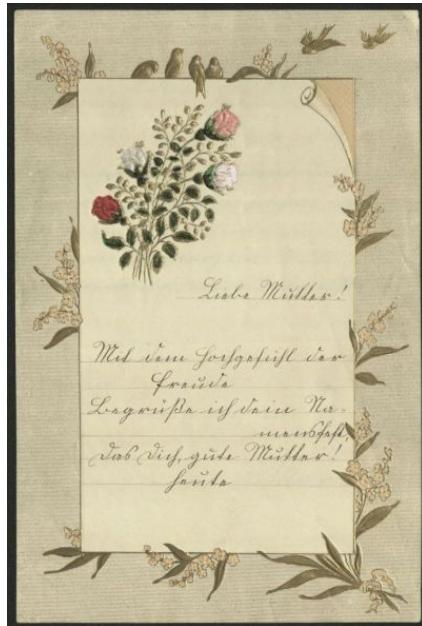 Liebe Mutter!
Mit dem Hochgefühl der
Freude
Begrüße ich dein Na-
mensfest,
Das Dich, gute Mutter!
heute